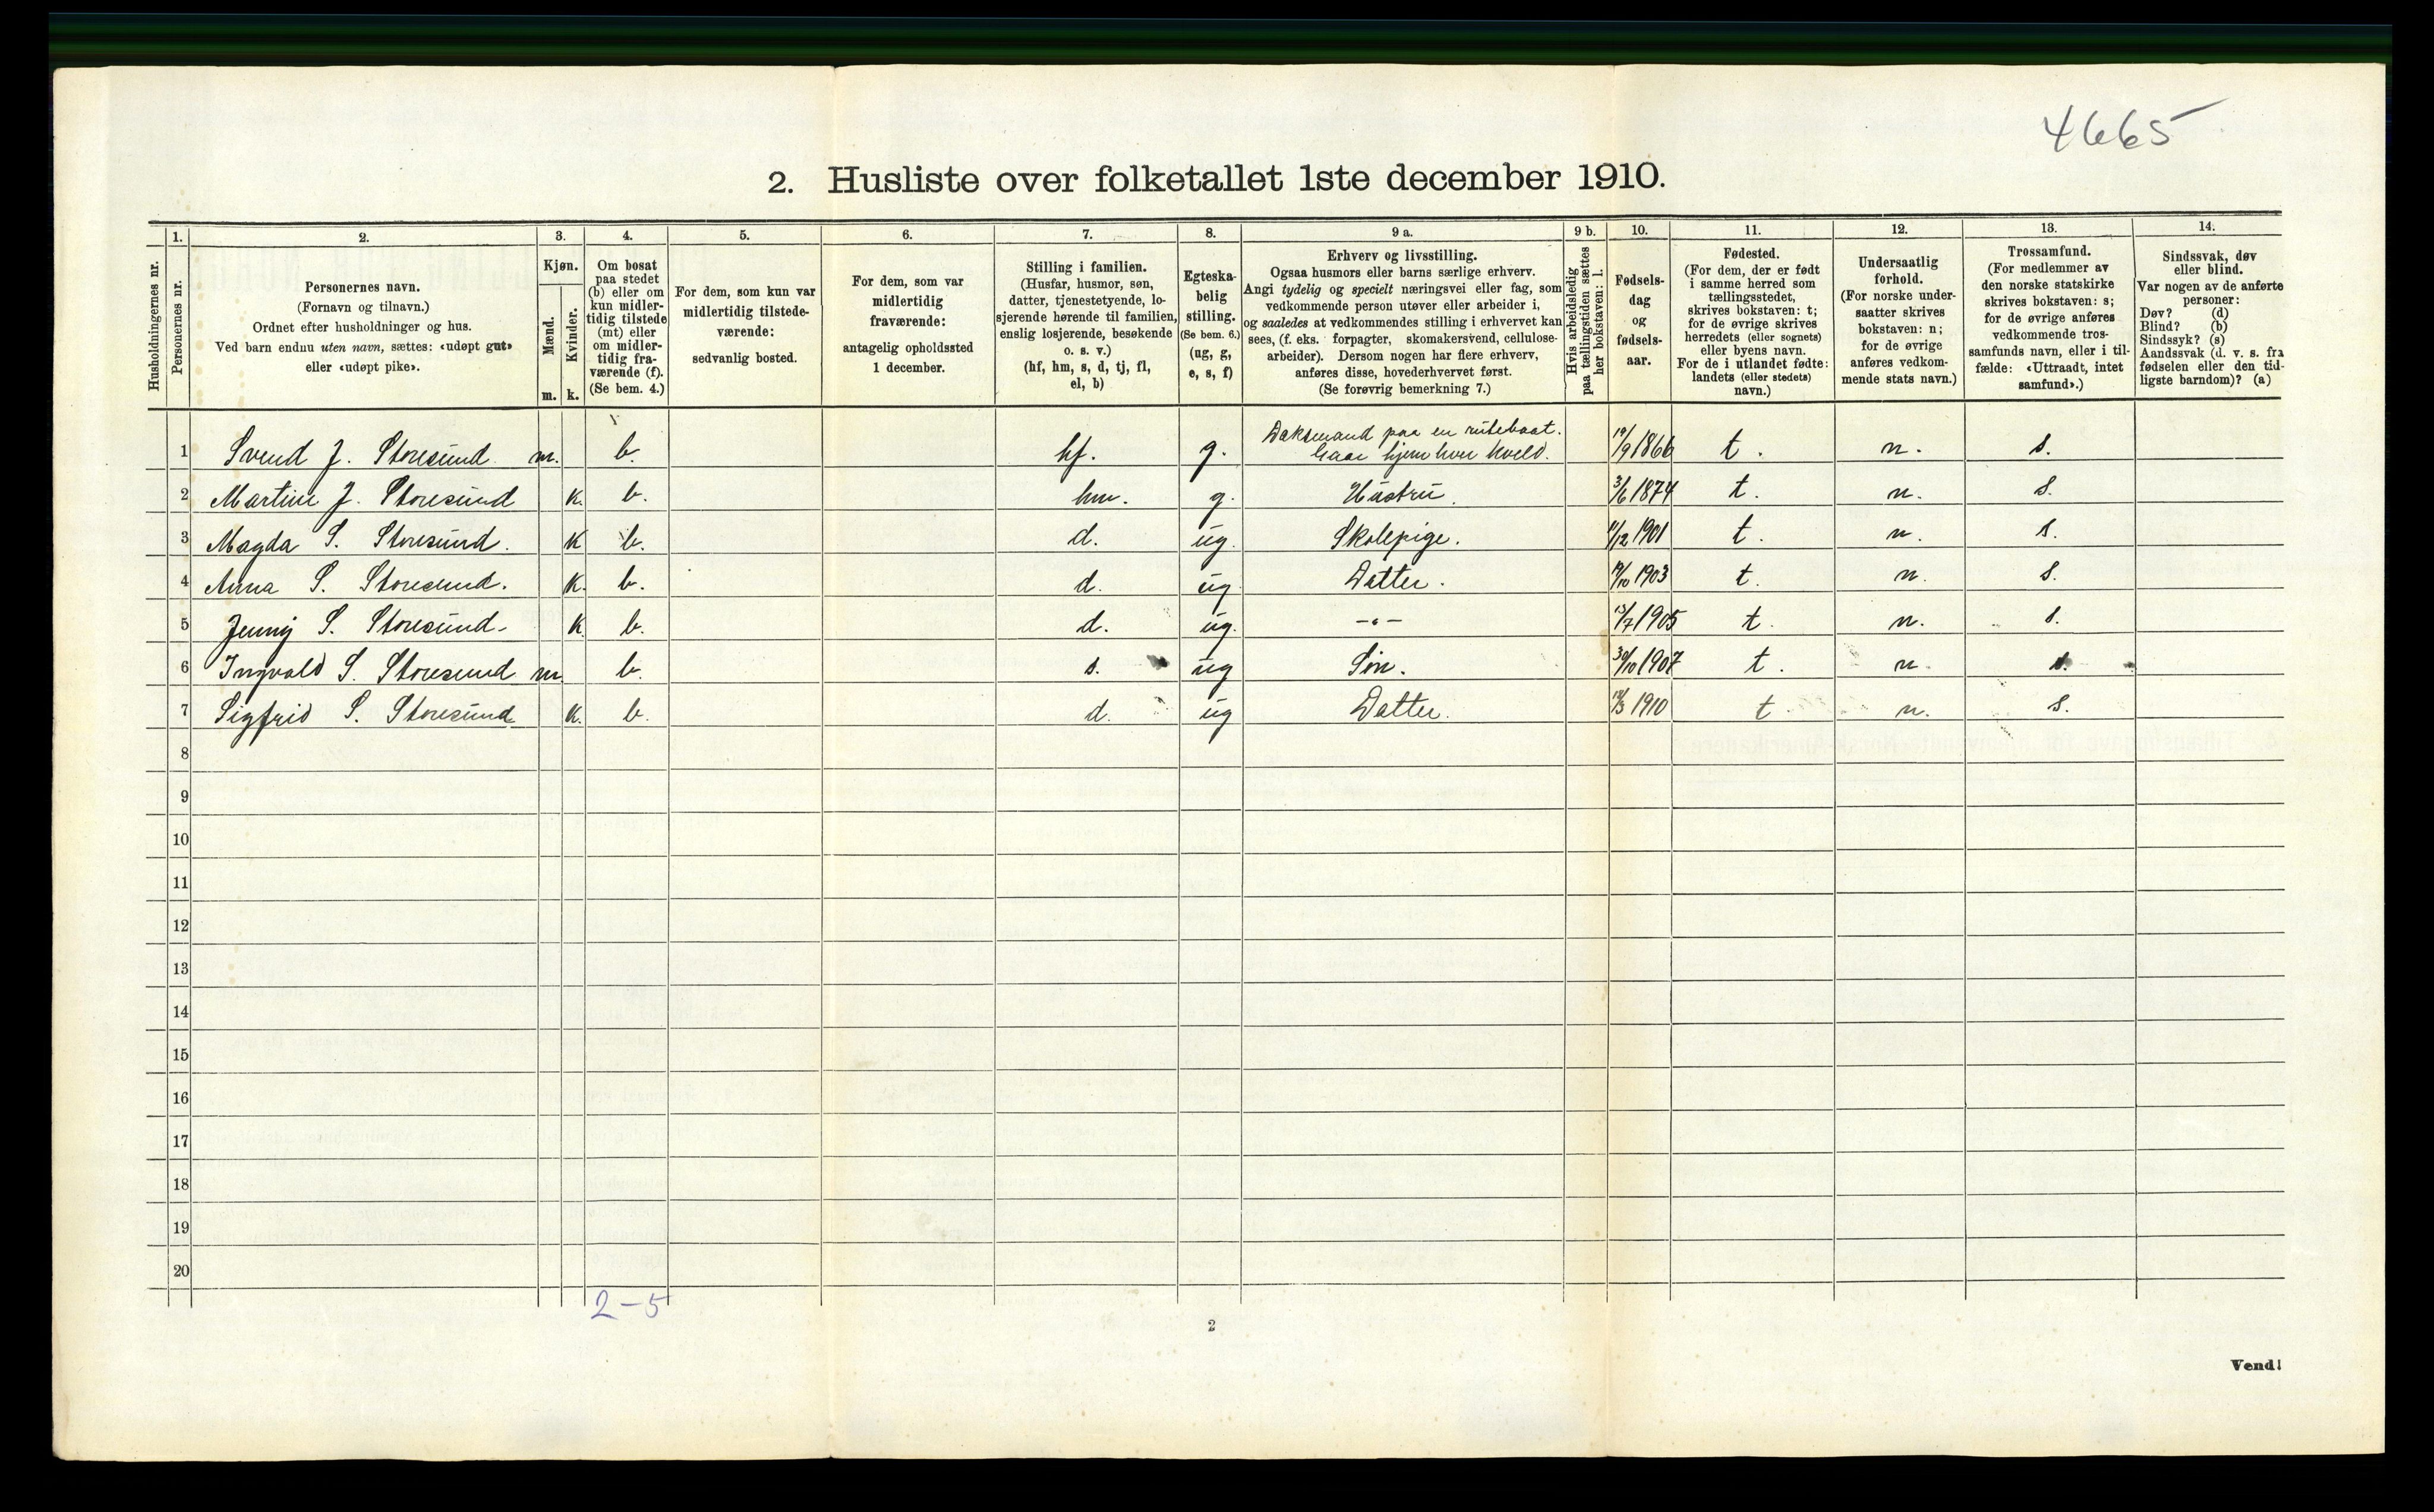 4665
2. Husliste over folketallet 1ste december 1910.
Husholdningernes nr.
1. Personernes nr.
2. Personernes navn.
(Fornavn og tilnavn.)
Ordnet efter husholdninger og hus.
Ved barn endnu uten navn, sættes: «udøpt gut»
eller «udøpt pike».
3. Kjøn.
Mænd. m.
Kvinder. k.
4. Om bosat
paa stedet
(b) eller om
kun midler-
tidig tilstede
(mt) eller
om midler-
tidig fra-
værende (f).
(Se bem. 4.)
5. For dem, som kun var
midlertidig tilstede-
værende:
sedvanlig bosted.
6. For dem, som var
midlertidig
fraværende:
antagelig opholdssted
1 december.
7. Stilling i familien.
(Husfar, husmor, søn,
datter, tjenestetyende, lo-
sjerende hørende til familien,
enslig losjerende, besøkende
o. s. v.)
(hf, hm, s, d, tj, fl,
el, b)
8. Egteska-
belig
stilling.
(Se bem. 6.)
(ug, g,
e, s, f)
9 a. Erhverv og livsstilling.
Ogsaa husmors eller barns særlige erhverv.
Angi tydelig og specielt næringsvei eller fag, som
vedkommende person utøver eller arbeider i,
og saaledes at vedkommendes stilling i erhvervet kan
sees, (f. eks. forpagter, skomakersvend, cellulose-
arbeider). Dersom nogen har flere erhverv,
anføres disse, hovederhvervet først.
(Se forøvrig bemerkning 7.)
9 b. Hvis arbeidsledig
paa tællingstiden sættes
her bokstaven: l.
10. Fødsels-
dag
og
fødsels-
aar.
11. Fødested.
(For dem, der er født
i samme herred som
tællingsstedet,
skrives bokstaven: t;
for de øvrige skrives
herredets (eller sognets)
eller byens navn.
For de i utlandet fødte:
landets (eller stedets)
navn.)
12. Undersaatlig
forhold.
(For norske under-
saatter skrives
bokstaven: n;
for de øvrige
anføres vedkom-
mende stats navn.)
13. Trossamfund.
(For medlemmer av
den norske statskirke
skrives bokstaven: s;
for de øvrige anføres
vedkommende tros-
samfunds navn, eller i til-
fælde: «Uttraadt, intet
samfund».)
14. Sindssvak, døv
eller blind.
Var nogen av de anførte
personer:
Døv? (d)
Blind? (b)
Sindssyk? (s)
Aandssvak (d. v. s. fra
fødselen eller den tid-
ligste barndom)? (a)
1 Svend J. Storesund m. b. hf. g. Dæksmand paa en rutebaat. Gaar hjem hver kveld. 19/9 1866 t. n. s.
2 Martine J. Storesund k. b. hm. g. Hustru. 3/6 1874 t. n. s.
3 Magda S. Storesund. K b. d. ug. Skolepige. 11/12 1901 t. n. s.
4 Anna S. Storesund. k. b. d. ug. Datter. 19/10 1903 t. n. s.
5 Jenny S. Storesund. K b. d. ug. -"- 13/7 1905 t. n. s.
6 Ingvald S. Storesund m. b. s. ug Søn. 30/10 1907 t. n. s.
7 Sigfrid S. Storesund k. b. d. ug Datter. 1910 t n. s.
8
9
10
11
12
13
14
15
16
17
18
19
20
2-5
2
Vend!